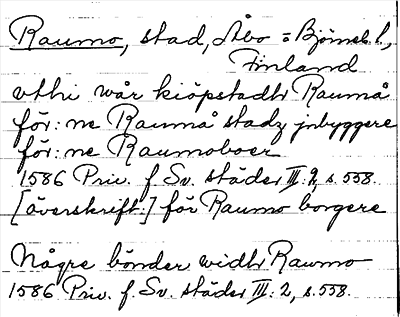 Raumo, stad, Åbo = Björneb. l.,
Finland
vthi wår kiöpstadh Raumå
för: ne Raumå stadz jnbyggere
för: ne Raumoboer
1586 Priv. f. Sv. städer III: 2, s. 558.
[överskrift:] för Raumo borgere
Någre bönder widh Raumo
1586 Priv. f. Sv. städer III: 2, s. 558.